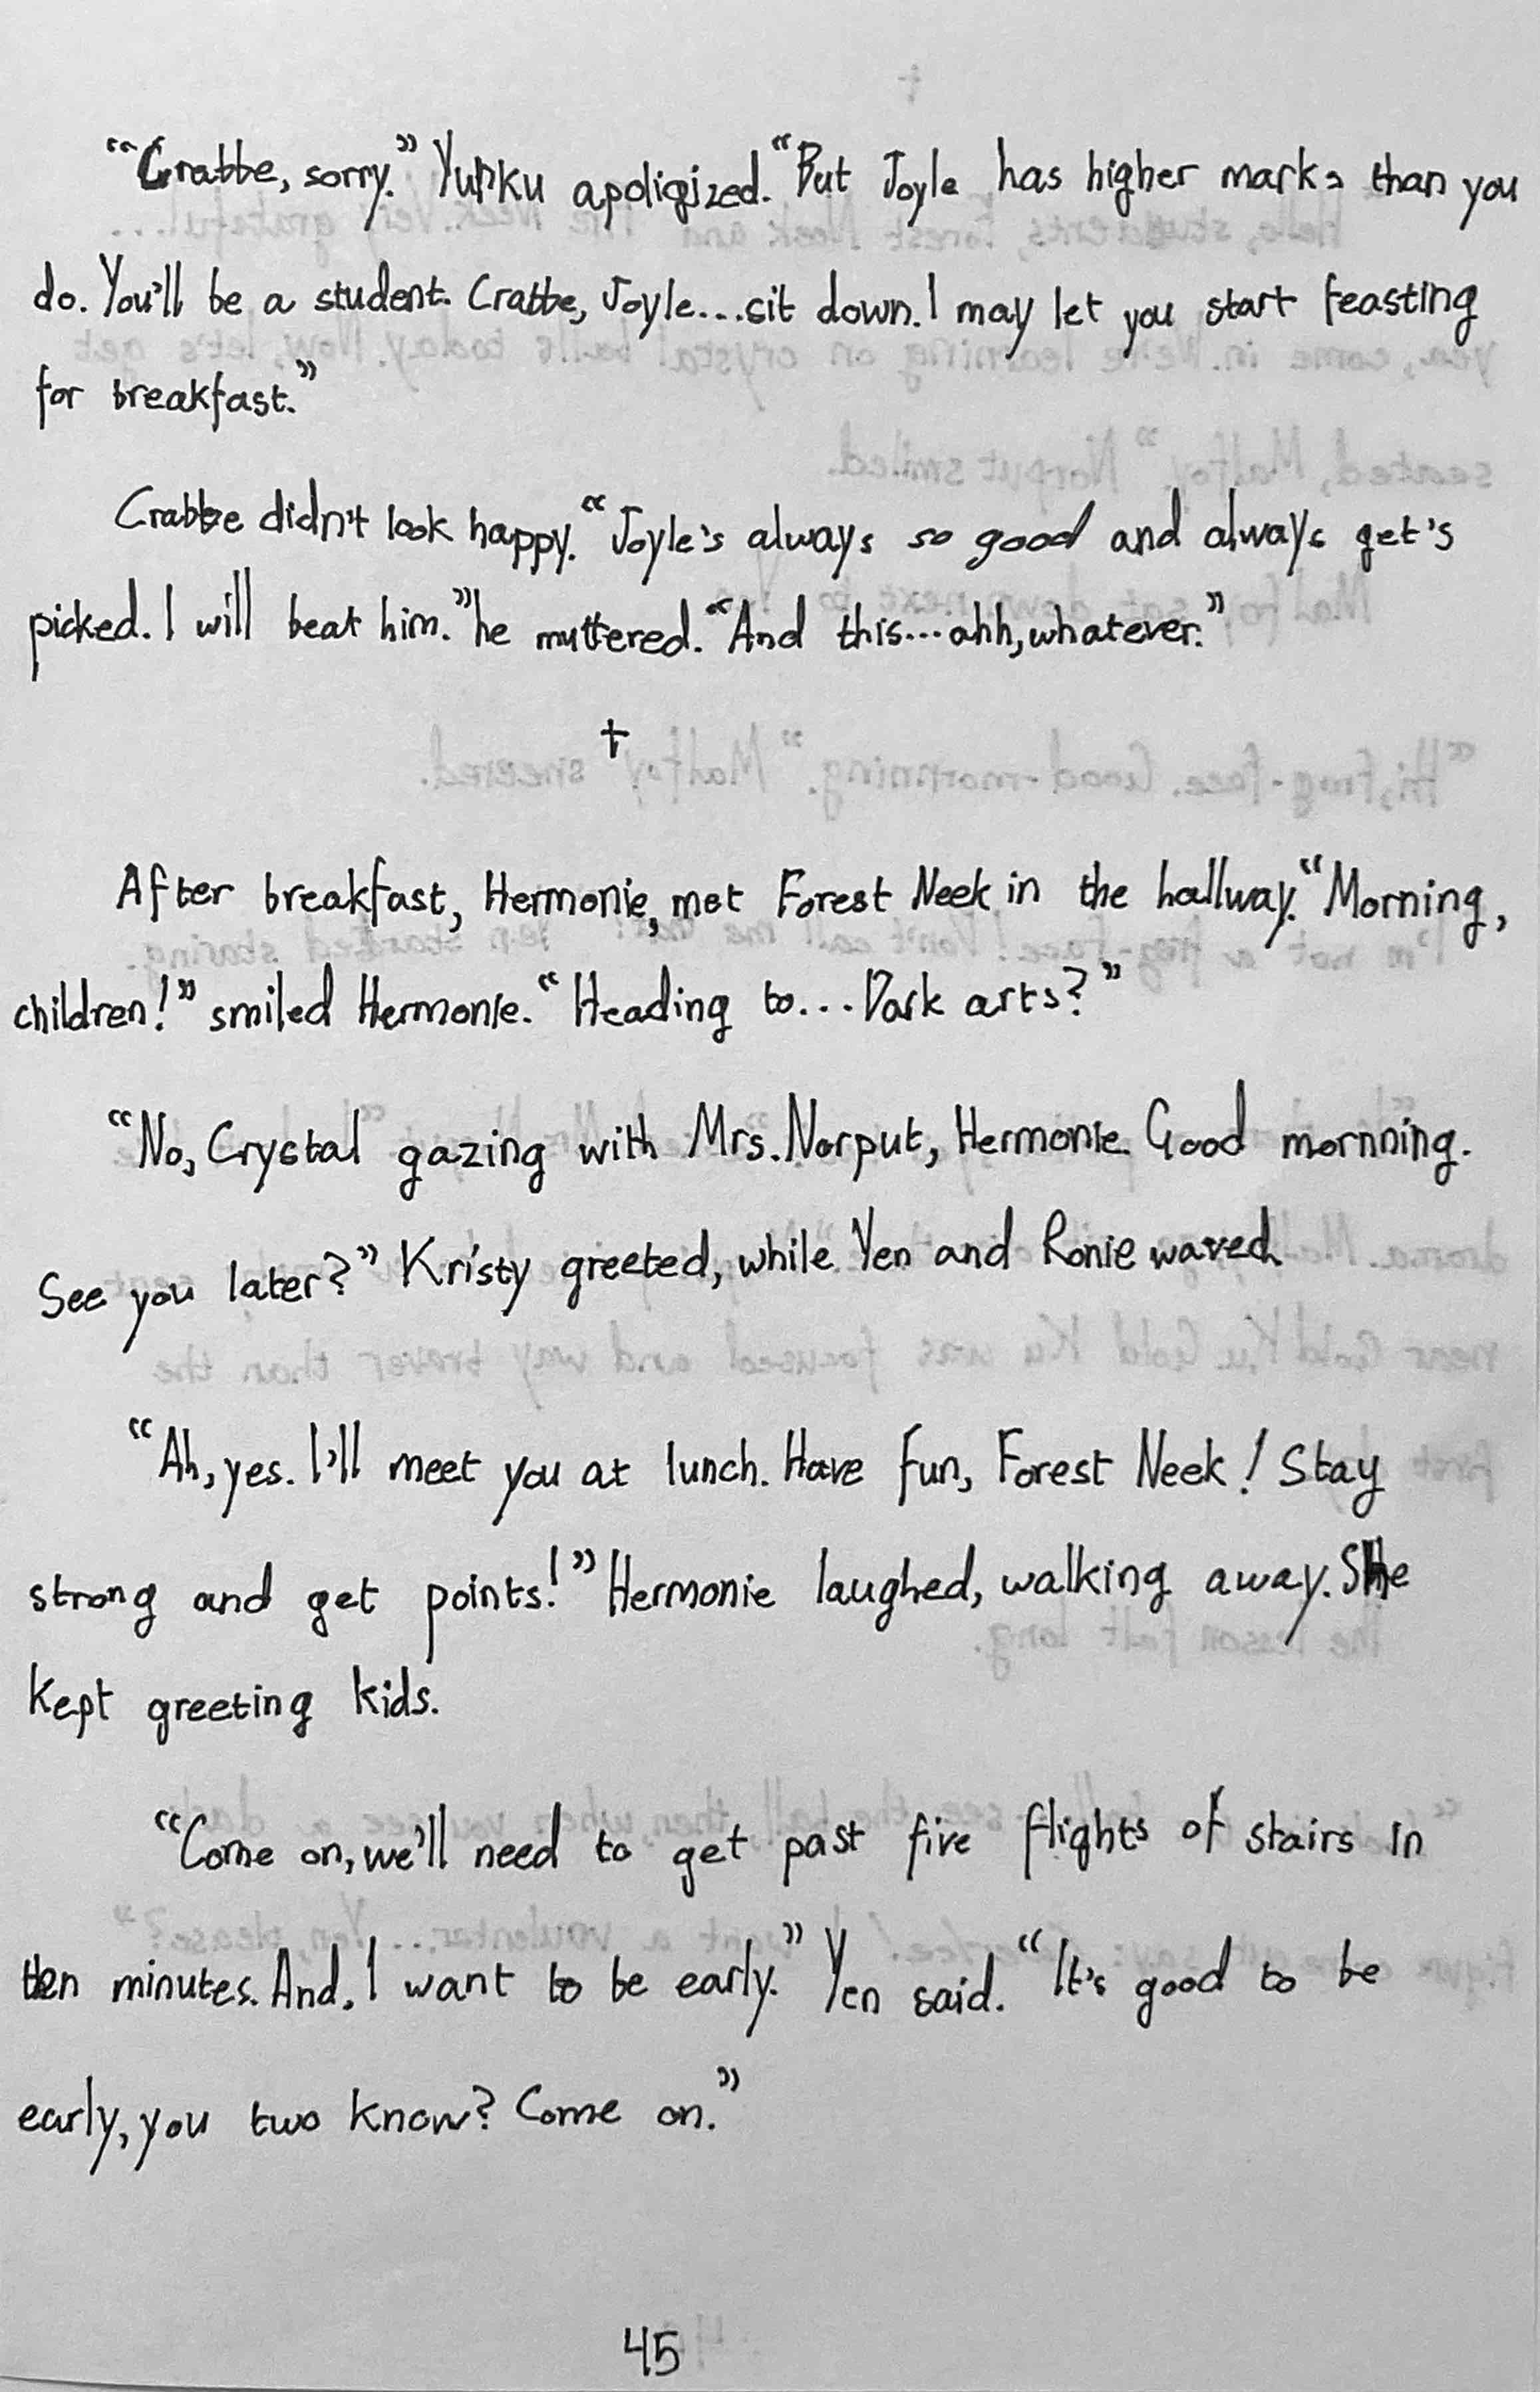 “Crabbe, sorry.” Yunku apoligized. “But Joyle has higher marks than you
do. You'll be a student. Crabbe, Joyle...sit down. I may let you start feasting
for breakfast.”
Crabbe didn't look happy. “Joyle's always so good and always get's
picked. I will beat him.” he muttered. “And this...ahh, whatever.”
†
After breakfast, Hermonie, met Forest Neek in the hallway. “Morning,
children!” smiled Hermonie. “Heading to... Dark arts?”
“No, Crystal gazing with Mrs. Norput, Hermonie. Good mornning.
See you later?” Kristy greeted, while Yen and Ronie waved.
“Ah, yes. I'll meet you at lunch. Have fun, Forest Neek! Stay
strong and get points!” Hermonie laughed, walking away. She
kept greeting kids.
“Come on, we'll need to get past five flights of stairs in
ten minutes. And, I want to be early.” Yen said. “It's good to be
early, you two know? Come on.”
45